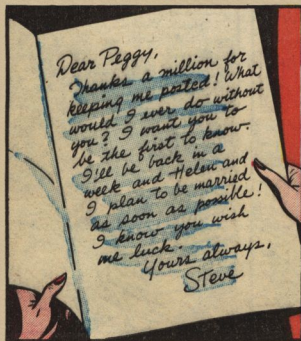 Dear Peggy,
Thanks a million for
keeping me posted! What
would I ever do without
you? I want you to
be the first to know.
I'll be back in a
week and Helen and
I plan to be married
as soon as possible!
I know you wish
me luck.
Yours always,
Steve